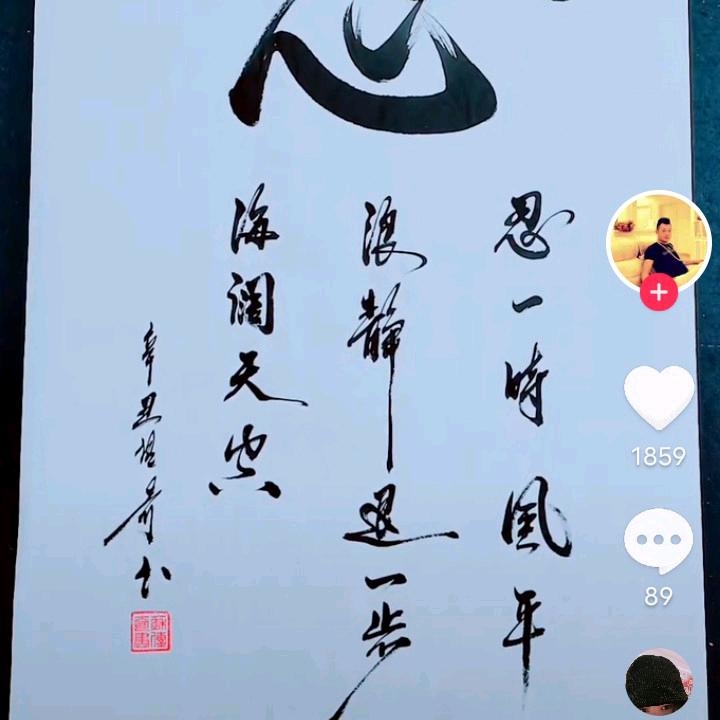 忍一時風平
浪靜退一步
海濶天空
辛丑书
1859
89